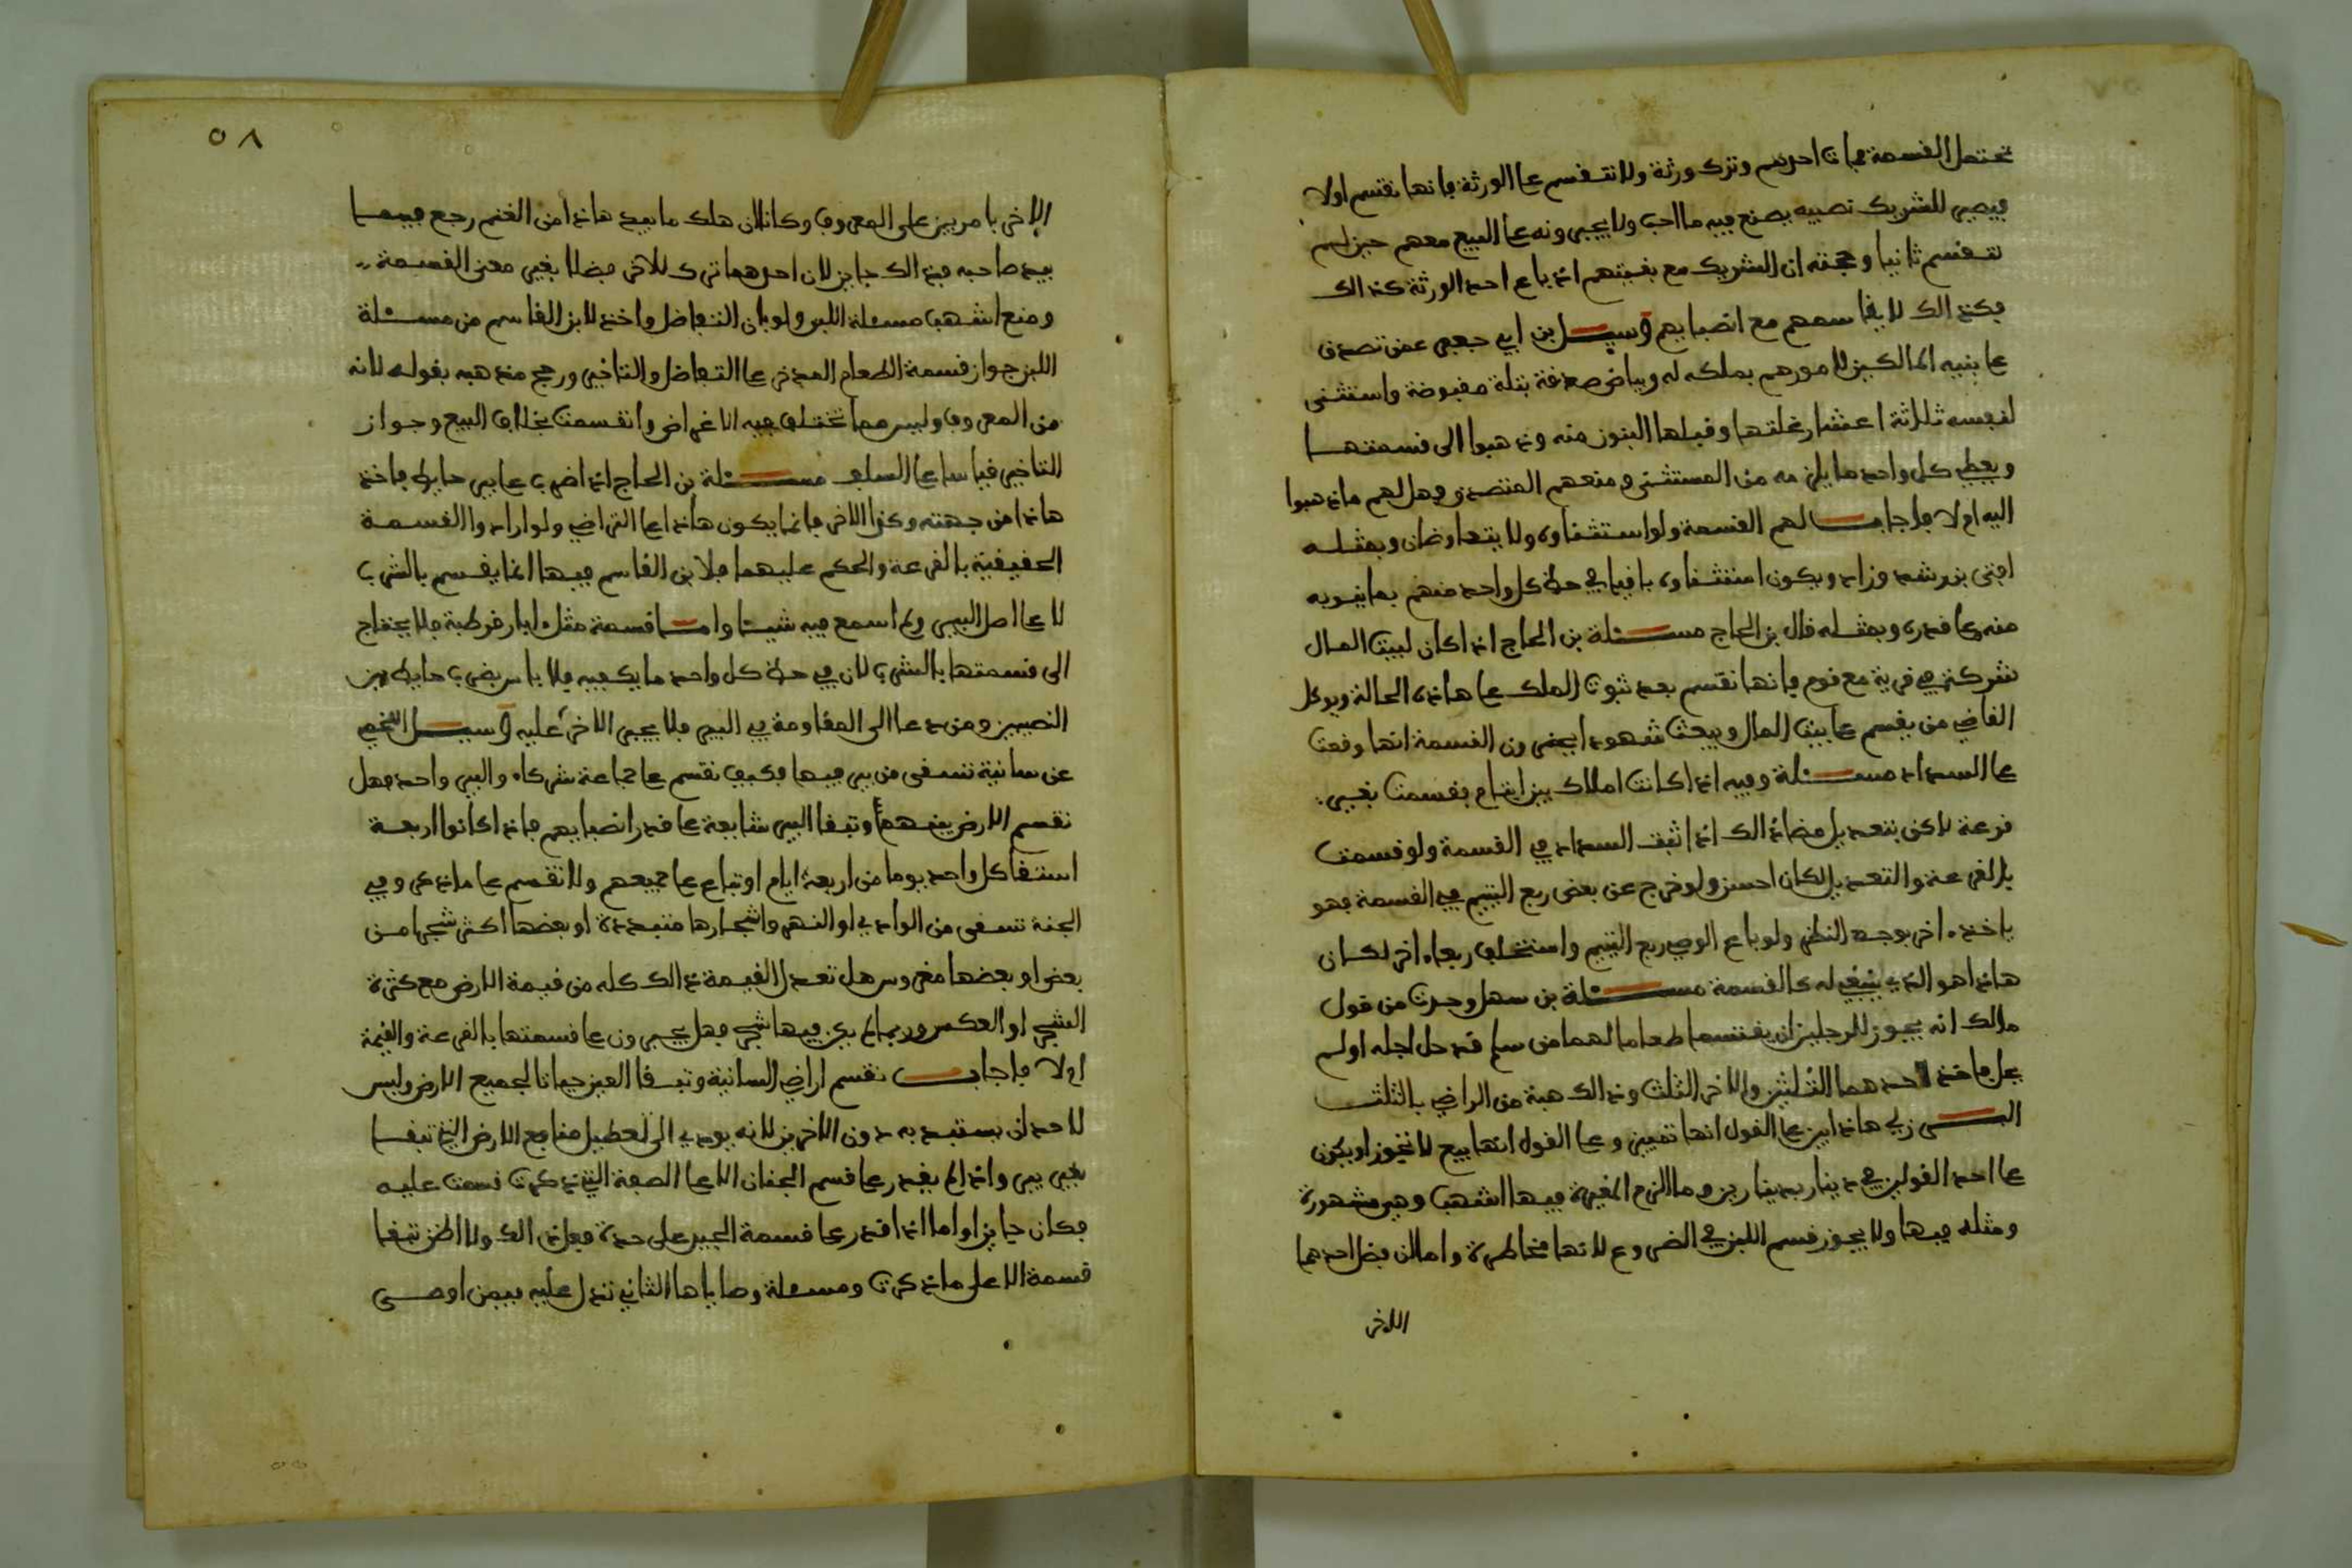 تحتمل القسمة فمات احدهم وترك ورثة ولا تنقسم على الورثة فانها تقسم اولا
فيصير للشريك نصيبه يصنع فيه ما احب ولا يجبرونه على البيع معهم حين لم
تنقسم ثانيا وحجته ان الشريك مع بقيتهم اذ باع احد الورثة كذالك
فكذالك لا يقاسمهم مع انصبايهم وسيل بن ابي جعفر عمن تصدق
على بنيه المالكين لامورهم بملكه له وبياض صدقة بتلة مقبوضة واستثنى
لنفسه ثلاثة اعشار غلتها وقبلها البنون منه وذهبوا الى قسمتها
ويعطي كل واحد ما يلزمه من المستثنى ومنعهم المتصدق وهل لهم ما ذهبوا
اليه ام لا فاجاب لهم القسمة ولو استثناوه ولا يتعاوضان وبمثله
افتى بن رشد وزاد ويكون استثناوه باقيا في حظ كل واحد منهم بما ينوبه
منه على قدره وبمثله قال بن الحاج مسئلة بن الحاج اذا كان لبيت المال
شركة في قرية مع قوم فانها تقسم بعد ثبوت الملك على هاذه الحالة ويوكل
القاضي من يقسم على بيت المال ويبعث شهودا يحضرون القسمة انها وقعت
على السداد مسئلة وفيه اذا كانت املاك بين ايتام فقسمت بغير
قرعة لاكن بتعديل مضا ذالك اذا ثبت السداد في القسمة ولو قسمت
بالقرعة والتعديل لكان احسن ولو خرج عن بعض ربع اليتيم في القسمة فهو
ياخذ اخر بوجه النظر ولو باع الوصي ربع اليتيم واستخلف ربعا اخر لكان
هاذا هو الذي ينبغي له كالقسمة مسئلة بن سهل وجدت من قول
مالك انه يجوز للرجلين ان يقتسما طعاما لهما من سلم قد حل اجله او لم
يحل ياخذ احدهما الثلثين والاخر الثلث وذالك هبة من الراضي بالثلث
البرزلي هاذا بين على القول انها تمييز وعلى القول انها بيع لا تجوز او يكون
على احد القولين في دينار بدينارين وما الزم المغيرة فيها اشهب وهي مشهورة
ومثله فيها ولا يجوز قسم اللبن في الضروع لانها مخاطرة واما ان فضل احدهما
الاخر
٥٨
الاخر بامر بين على المعروف وكانا ان هلك ما بيد هاذا من الغنم رجع فيما
بيد صاحبه فذالك جايز لان احدهما ترك للاخر فضلا بغير معنى القسمة
ومنع اشهب مسئلة اللبن ولو بان التفاضل واخذ لابن القاسم من مسئلة
اللبن جواز قسمة الطعام المدخر على التفاضل والتاخير ورجح مذهبه بقوله لانه
من المعروف وليس مما تختلف فيه الاغراض وانقسمت بخلاف البيع وجواز
التاخير قياسا على السلف مسئلة بن الحاج اذا ضرب على بير حايط فاخذ
هاذا من جهته وكذا الاخر فانما يكون هاذا على التراضي ولو ارادوا القسمة
الحقيقية بالقرعة والحكم عليهما فلابن القاسم فيها انما يقسم بالشرب
لا على اصل البير ولم اسمع فيه شيئا واما قسمة مثل ابار قرطبة فلا يحتاج
الى قسمتها بالشرب لان في حظ كل واحد ما يكفيه فلا باس بضرب حايط بين
النصيبين ومن دعا الى المقاومة في البير فلا يجبر الاخر عليه وسيل اللخمي
عن سانية تسقى من بير فيها فكيف تقسم على جماعة شركاء والبير واحد فهل
تقسم الارض بينهم وتبقا البير شايعة على قدر انصبايهم فاذا كانوا اربعة
استقا كل واحد يوما من اربعة ايام او تباع على جميعهم ولا تقسم على ما ذكر وفي
الجنة تسقى من الوادي او النهر واشجارها متبددة او بعضها اكثر شجرا من
بعض او بعضها مغروس هل تعدل القيمة ذالك كله من قيمة الارض مع كثرة
الشجر او العكس وربما لم يكن فيها شجر فهل يجبرون على قسمتها بالقرعة والقيمة
ام لا فاجاب تقسم اراضي السانية وتبقا العين حياتا لجميع الارض وليس
لاحد ان يستبد به دون الاخرين لانه يودي الى تعطيل منافع الارض التي تبقا
بغير بير واذا لم يقدر على قسم الجنان الا على الصفة التي ذكرت قسمت عليه
فكان جايزا واما اذا قدر على قسمة الجير على حدة فعل ذالك ولا اظن تبقا
قسمة الا على ما ذكرت ومسئلة وصاياها الثاني تدل عليه فيمن اوصى